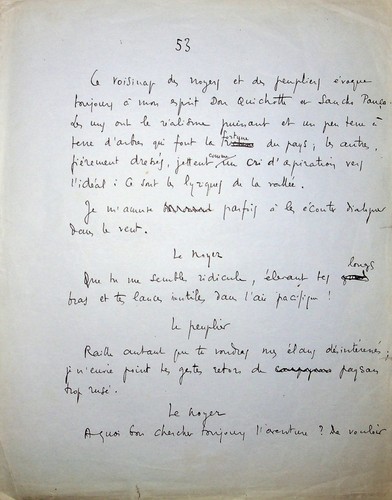 53
Le voisinage des noyers et des peupliers évoque
toujours à mon esprit Don Quichotte et Sancho Pança.
Les uns ont le réalisme puissant et un peu terre à
terre d'arbres qui font la fortune du pays ; les autres,
fièrement dressés, jettent comme un cri d'aspiration vers
l'idéal : Ce sont les lyriques de la vallée.
Je m'amuse parfois à les écouter dialoguer
dans le vent.
Le Noyer
Que tu me semble ridicule, élevant tes longs
bras et tes lances inutiles dans l'air pacifique !
Le peuplier
Raille autant que tu voudras mes élans désintéressés ;
je n'envie point tes gestes retors de paysan
trop rusé.
Le Noyer
A quoi bon chercher toujours l'aventure ? De vouloir